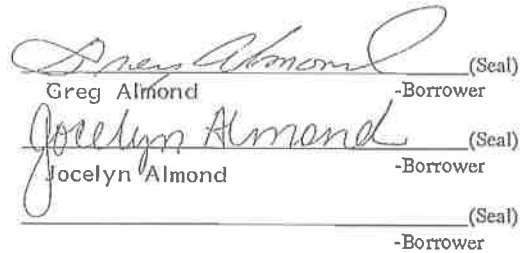 Greg Almond (Seal)
Greg Almond -Borrower
Jocelyn Almond (Seal)
Jocelyn Almond -Borrower
(Seal)
-Borrower